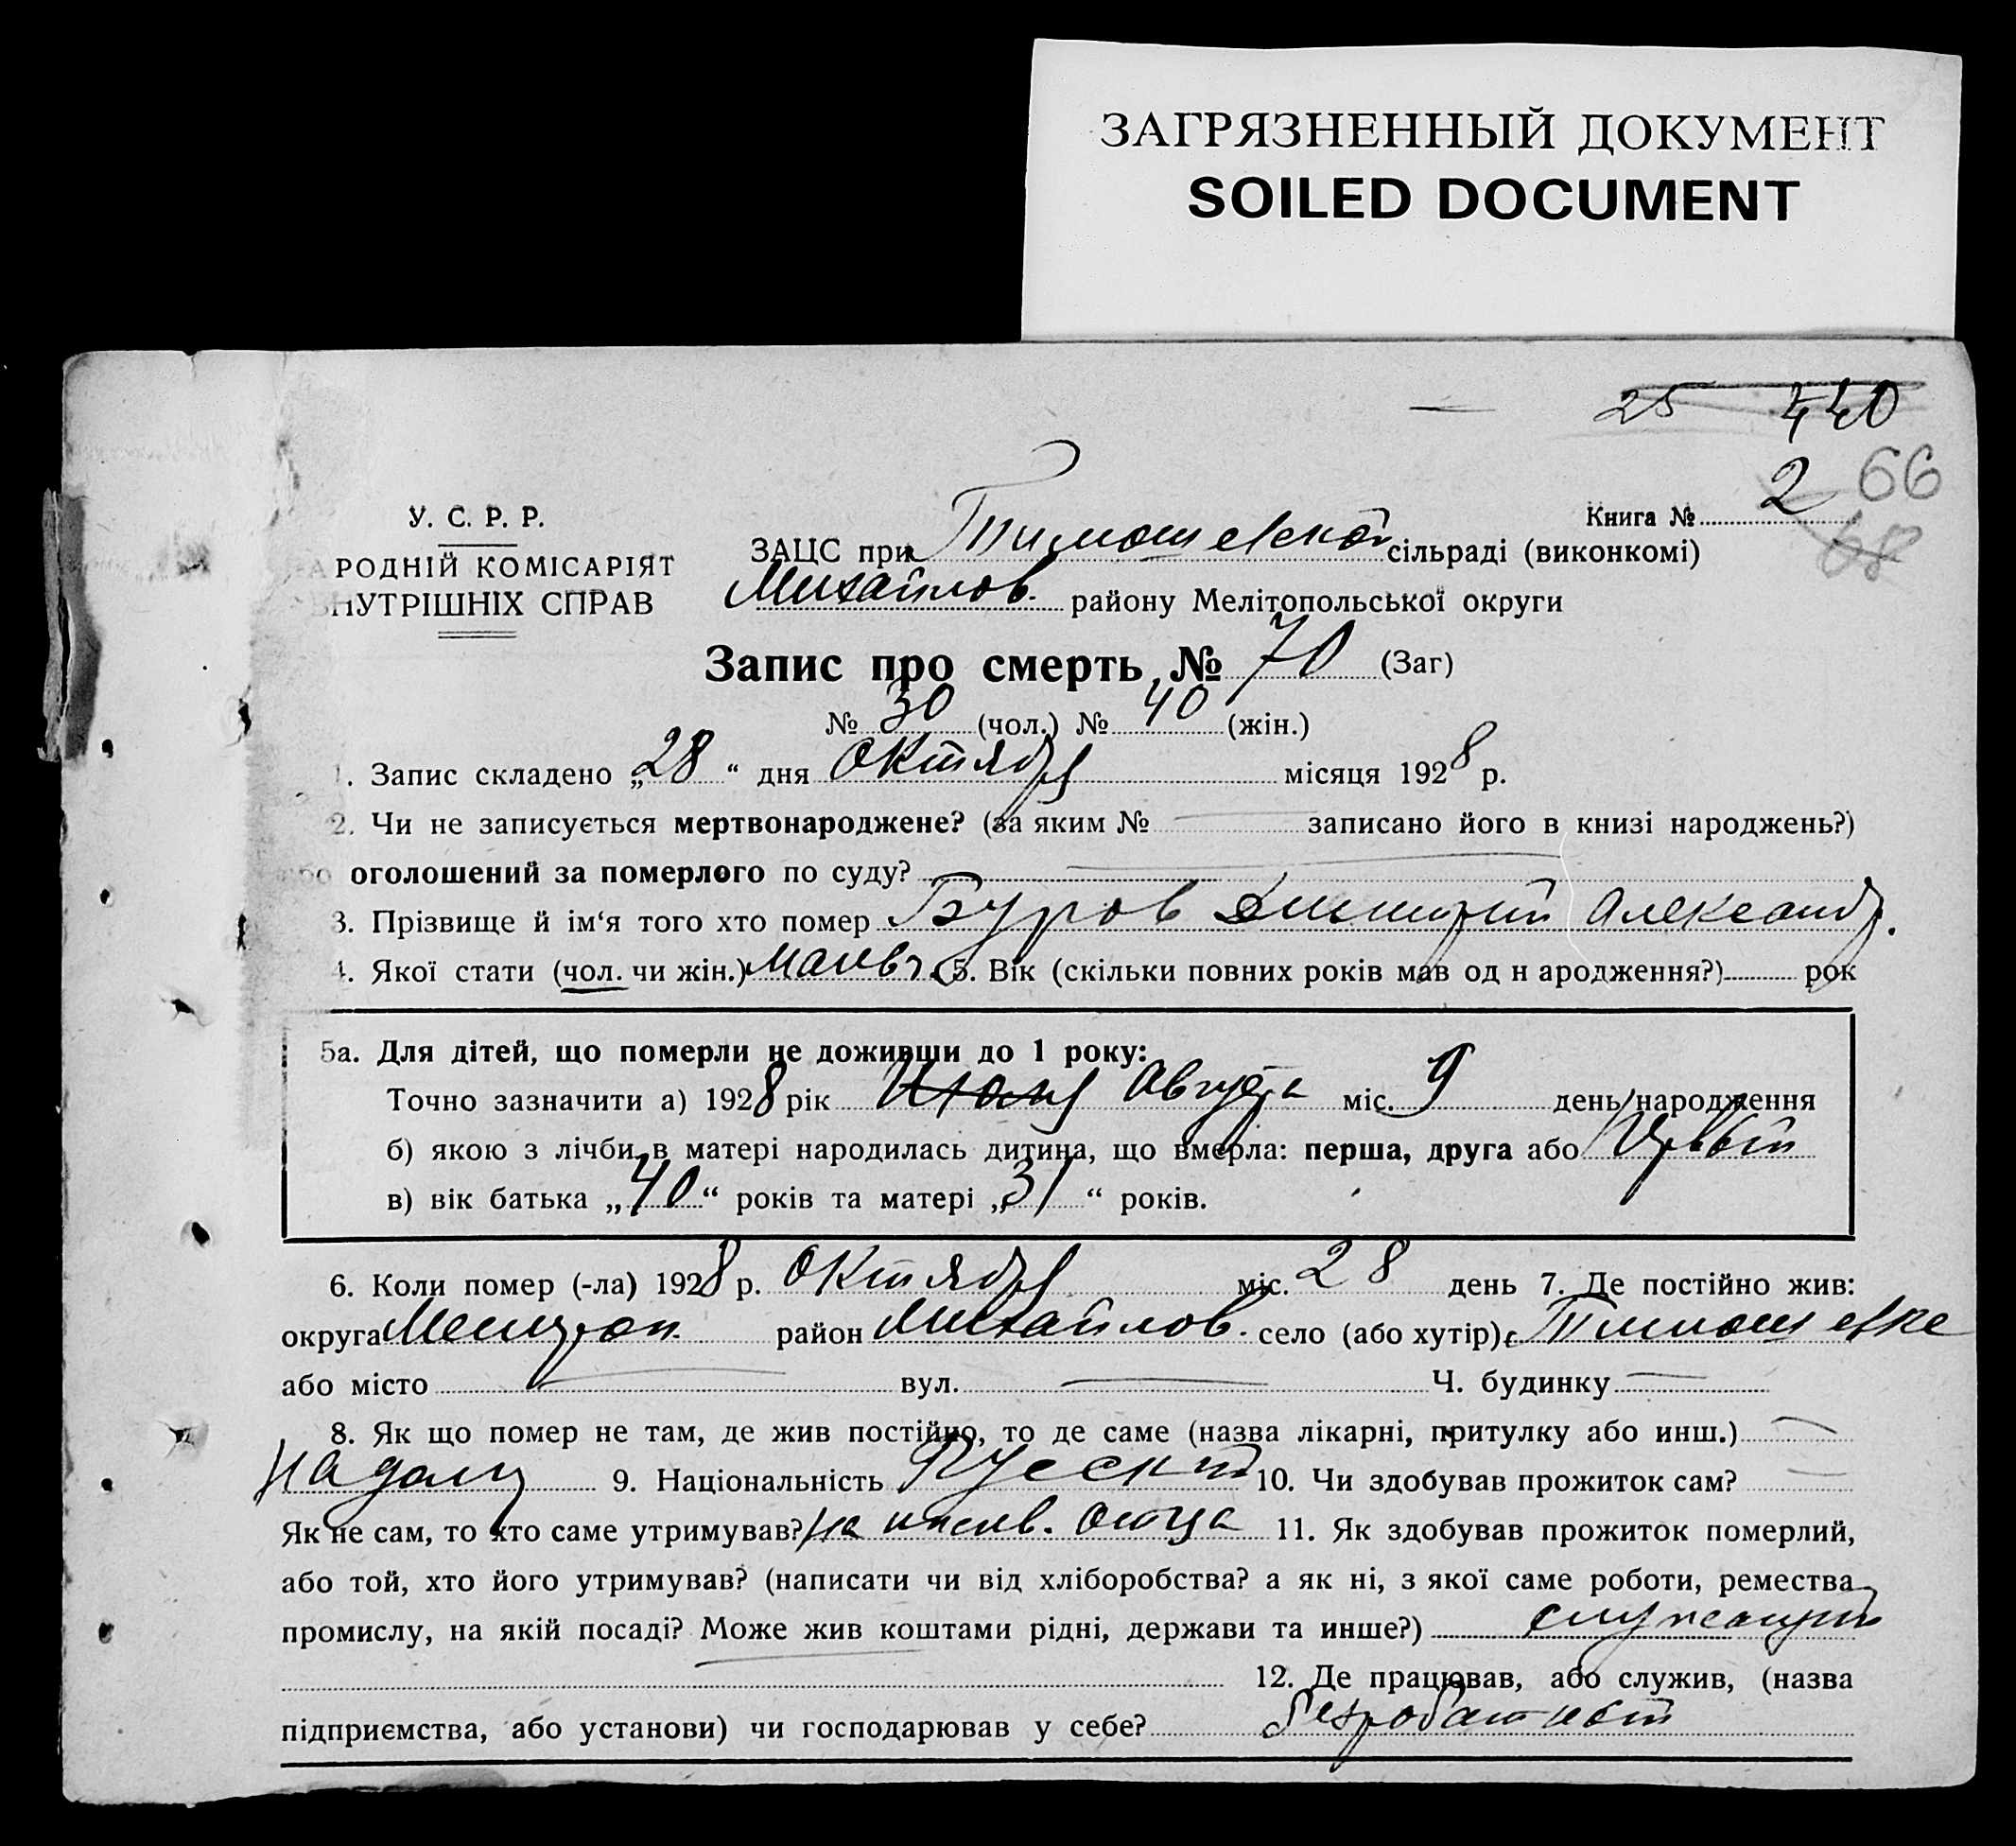 ЗАГРЯЗНЕННЫЙ ДОКУМЕНТ
SOILED DOCUMENT
25 440
66
Книга № 2
68
У. С. Р. Р.
РОДНІЙ КОМІСАРІЯТ
НУТРІШНІХ СПРАВ
ЗАЦС при Тимошевской сільраді (виконкомі)
Михайлов. району Мелітопольської округи
Запис про смерть № 70 (Заг)
№ 30 (чол.) № 40 (жін.)
1. Запис складено „28“ дня Октября місяця 1928 р.
2. Чи не записується мертвонароджене? (за яким № записано його в книзі народжень?)
оголошений за померлого по суду?
3. Прізвище й ім‘я того хто помер Буров Димитрий Александр.
4. Якої стати (чол. чи жін.) 5. Вік (скільки повних років мав од н ародження?) рок
5а. Для дітей, що померли не доживши до 1 року:
Точно зазначити а) 1928 рік Июля Августа міс. 9 день народження
б) якою з лічби в матері народилась дитина, що вмерла: перша, друга або
в) вік батька „40“ років та матері „31“ років.
6. Коли помер (-ла) 1928 р. Октября міс. 28 день 7. Де постійно жив:
округа район Михайлов. село (або хутір) с. Тимошевке
або місто вул. Ч. будинку
8. Як що помер не там, де жив постійно, то де саме (назва лікарні, притулку або инш.)
на дому 9. Національність Русский 10. Чи здобував прожиток сам?
Як не сам, то хто саме утримував? на иждив. Отца 11. Як здобував прожиток померлий,
або той, хто його утримував? (написати чи від хліборобства? а як ні, з якої саме роботи, ремества
промислу, на якій посаді? Може жив коштами рідні, держави та инше?) служащий
12. Де працював, або служив, (назва
підприємства, або установи) чи господарював у себе? безработный